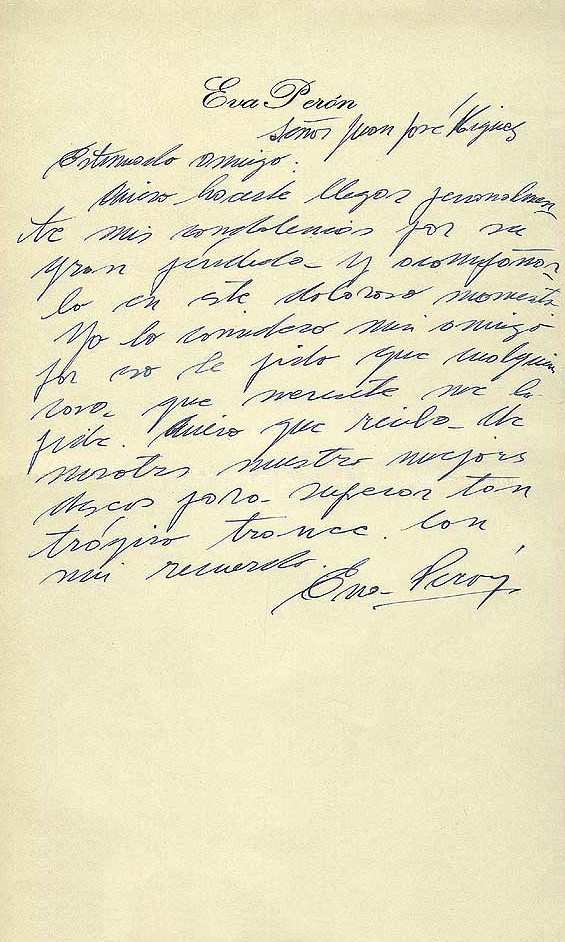 Eva Perón
Señor Juan José Miguez
Estimado amigo:
Quiero hacerle llegar personalmen-
te mis condolencias por su
gran perdida y acompañar-
lo en este doloroso momento
Yo lo considero mi amigo
por eso le pido que cualquier
cosa que necesite me la
pida. Quiero que reciba de
nosotros nuestro mejores
deseos para superar tan
trágico trance. Con
mi recuerdo.
Eva Perón